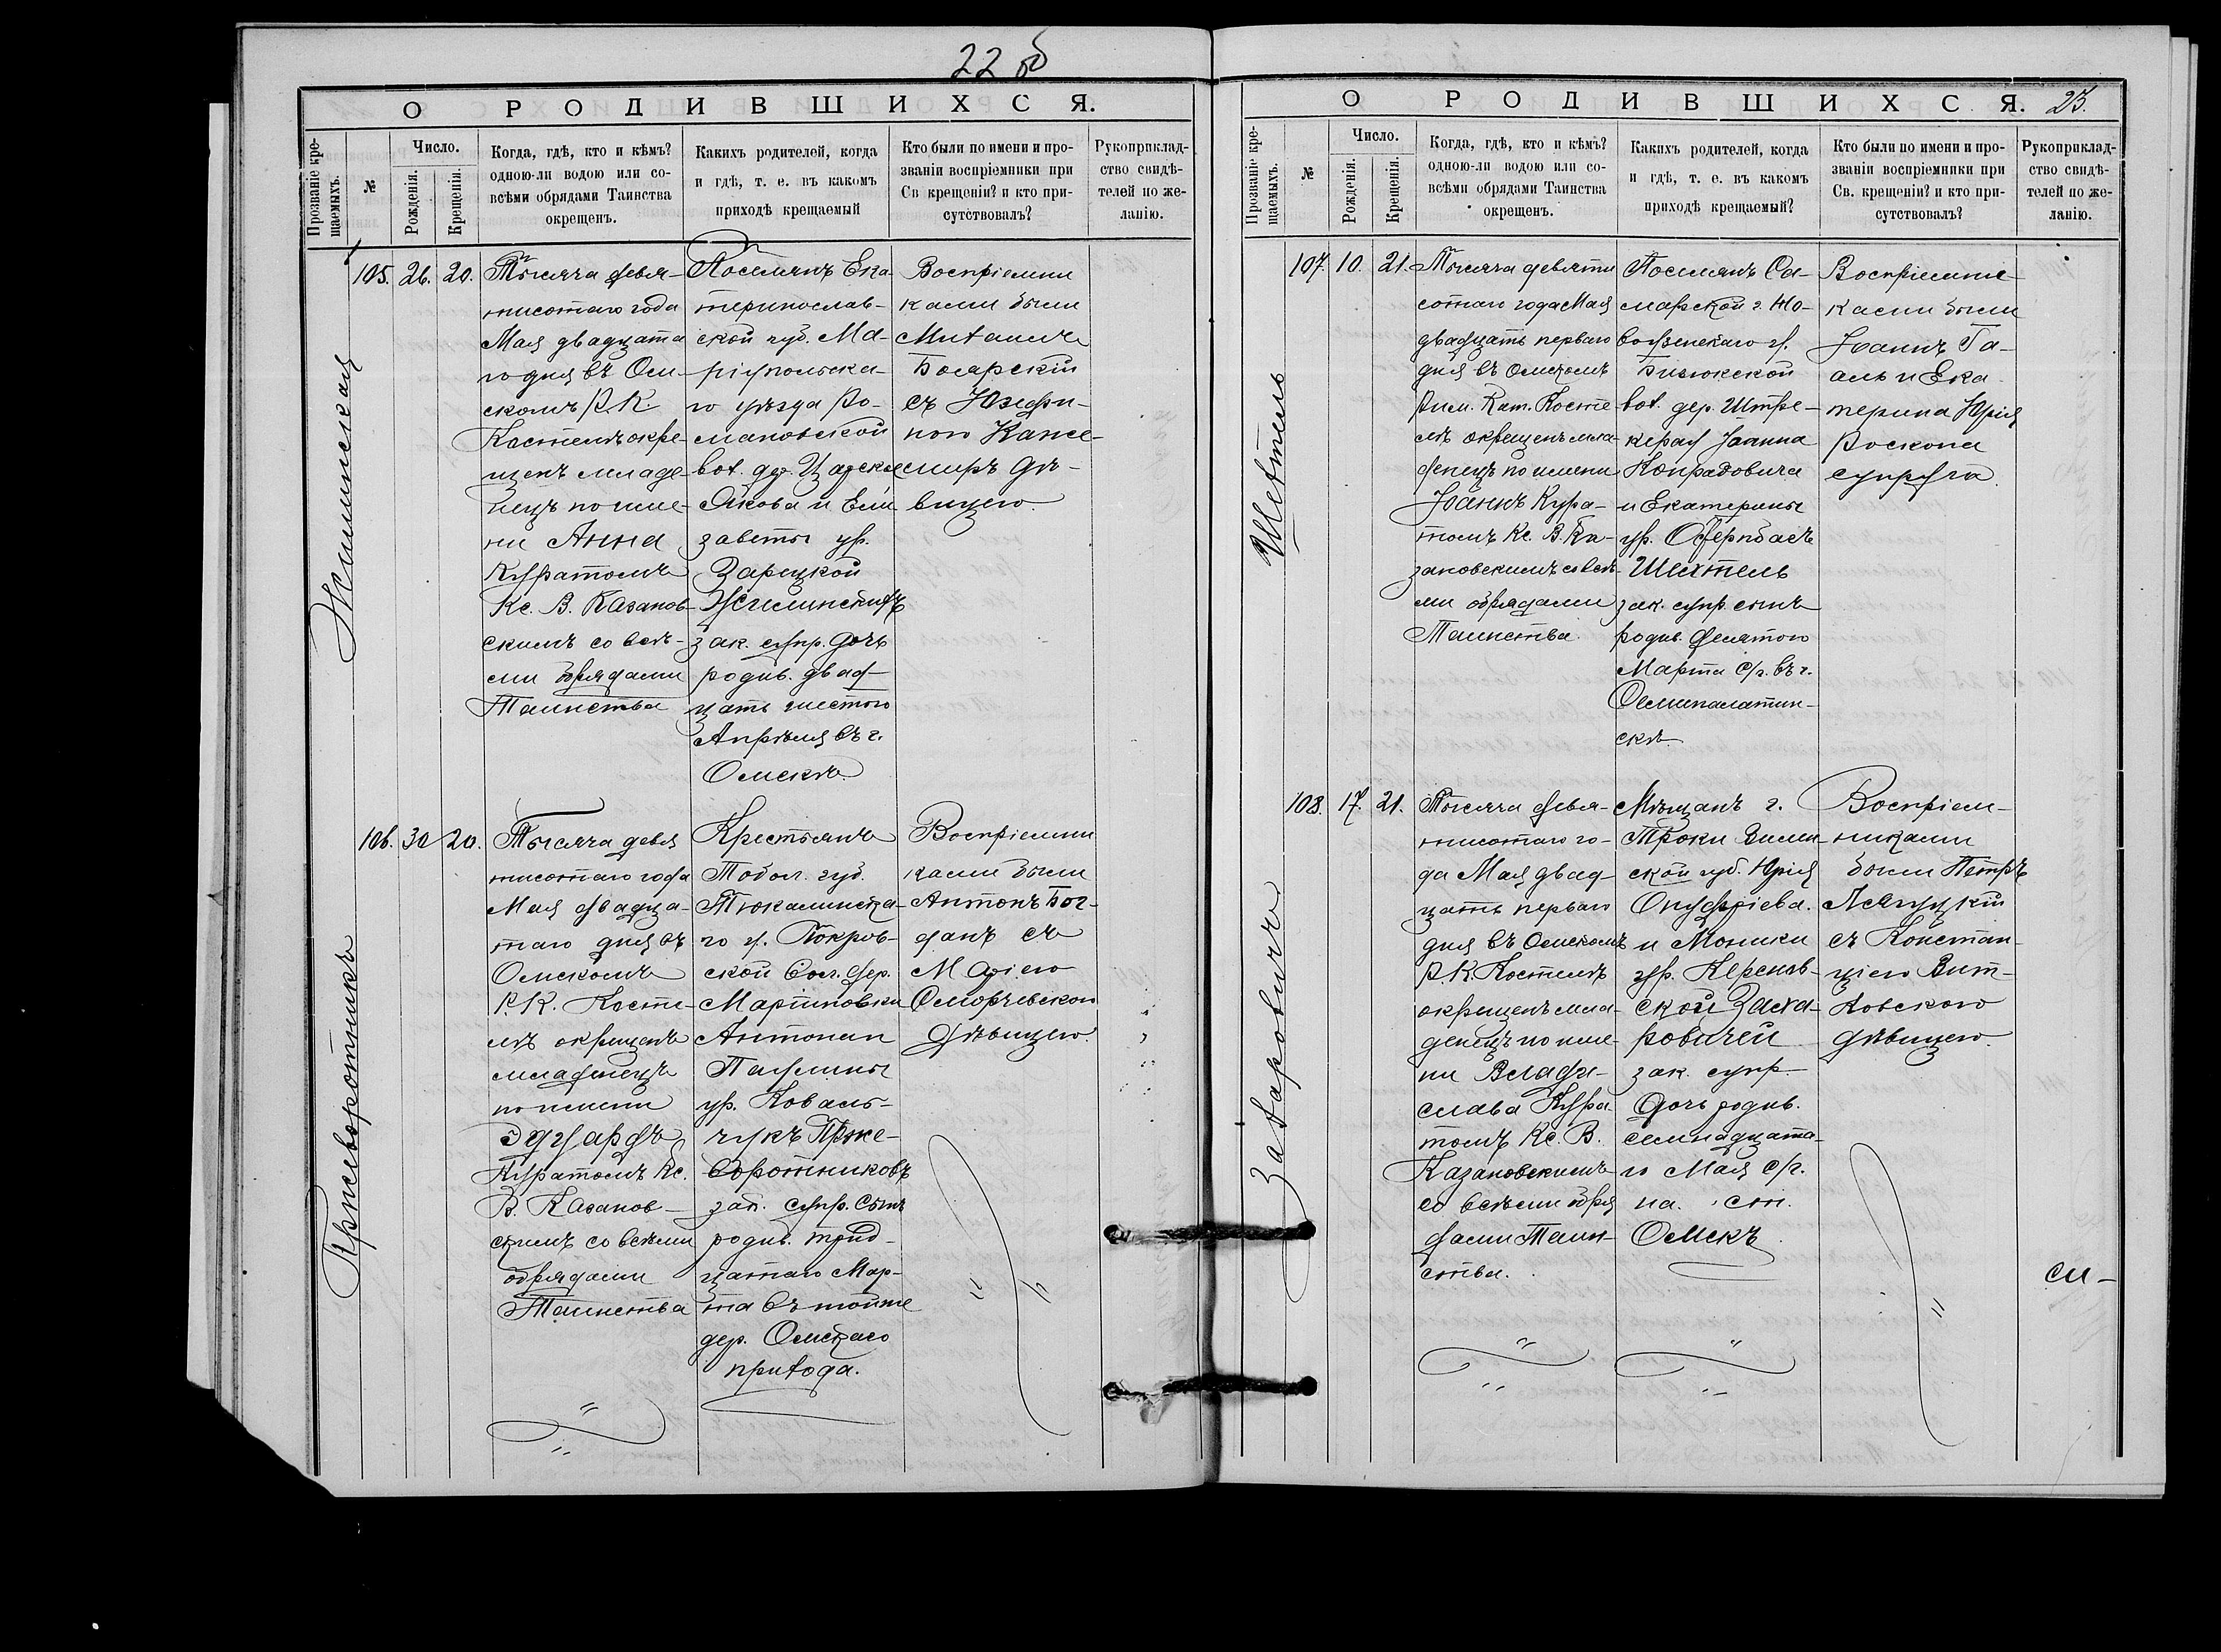 22 об
О РОДИВШИХСЯ.
Прозваніе кре-
щаемыхъ.
№
Число.
Рожденія.
Крещенія.
Когда, гдѣ, кто и кѣмъ?
одною-ли водою или со-
всѣми обрядами Таинства
окрещенъ.
Какихъ родителей, когда
и гдѣ, т. е. въ какомъ
приходѣ крещаемый
Кто были по имени и про-
званіи воспріемники при
Св крещеніи? и кто при-
сутствовалъ?
Рукоприклад-
ство свидѣ-
телей по же-
ланію.
Жилинская
105. 26. 20.
Тысяча девя-
тисотаго года
Мая двадцата
го дня въ Ом-
скомъ Р.К.
Костелѣ окре-
щенъ младе-
нецъ по име-
ни Анна
Куратомъ
Кс. В. Казанов-
скимъ со всѣ-
ми обрядами
Таинства
Поселянъ Ека-
теринослав-
ской губ. Ма-
ріупольска-
го уѣзда Ро-
мановской
вол. дер. Царске
Якова и Ели-
заветы ур.
Зарецкой
Жилинскихъ
зак. супр. дочь
родив. двад-
цать шестого
Апрѣля въ г.
Омскѣ.
Воспріемни
ками были
Михаилъ
Боярскій
съ Юзефи-
ною Кажи-
миръ дѣ-
вицею.
Пржеворотникъ
106. 30 20.
Тысяча девя
тисотаго года
Мая двадца-
таго дня въ
Омскомъ
Р.К. Косте-
лѣ окрещенъ
младенецъ
по имени
Эдуардъ
Куратомъ Кс.
В. Казанов-
скимъ со всѣми
обрядами
Таинства
Крестьянъ
Тобол. губ.
Тюкалинска-
го у. Покров-
ской вол. дер.
Мартиновки
Антона и
Паулины
ур. Коваль-
чукъ Прже-
воротниковъ
зак. супр. сынъ
родив. трид-
цатаго Мар-
та въ той же
дер. Омскаго
прихода.
Воспріемни
ками были
Антонъ Бог-
данъ съ
Маріею
Сморчевскою
дѣвицею.
О РОДИВШИХСЯ. 23.
Прозваніе кре-
щаемыхъ.
№
Число.
Рожденія.
Крещенія.
Когда, гдѣ, кто и кѣмъ?
одною-ли водою или со-
всѣми обрядами Таинства
окрещенъ.
Какихъ родителей, когда
и гдѣ, т. е. въ какомъ
приходѣ крещаемый?
Кто были по имени и про-
званіи воспріемники при
Св. крещеніи? и кто при-
сутствовалъ?
Рукоприклад-
ство свидѣ-
телей по же-
ланію.
107. 10. 21.
Тысяча девяти
сотаго года Мая
двадцать перваго
дня въ Омскомъ
Рим. Кат. Косте
лѣ окрещенъ мла-
денецъ по имени
Іоаннъ Кура-
томъ Кс. В. Ка-
зановскимъ со всѣ-
ми обрядами
Таинства.
Поселянъ Са-
марской г. Но-
воузенскаго у.
Бизюкской
вол. дер. Штре-
керау Іоанна
Конрадовича
и Екатерины
ур.
Шехтель
зак. супр. сынъ
родив. десятого
Марта с/г. въ г.
Семипалатин-
скѣ.
Воспріемни-
ками были
Іоаннъ Га-
аль и Ека
терина Юрія
Роскопа
супруга.
Захаровичъ
108. 17. 21.
Тысяча девя-
тисотаго го-
да Мая двад-
цать перваго
дня въ Омскомъ
Р.К. Костелѣ
окрещенъ мла-
денецъ по име-
ни Влади-
слава Кура-
томъ Кс. В.
Казановскимъ
со всѣми обря
дами Таин-
ства.
Мѣщанъ г.
Троки Вилен-
ской губ. Юрія
Онуфріева.
и Моники
ур. Керснов-
ской Заха-
ровичей
зак. супр.
дочь родив.
семнадцата-
го Мая с/г.
на. ст.
Омскъ
Воспріем-
никами
были Петръ
съ Констан-
ціею Вит-
ковскою
дѣвицею.